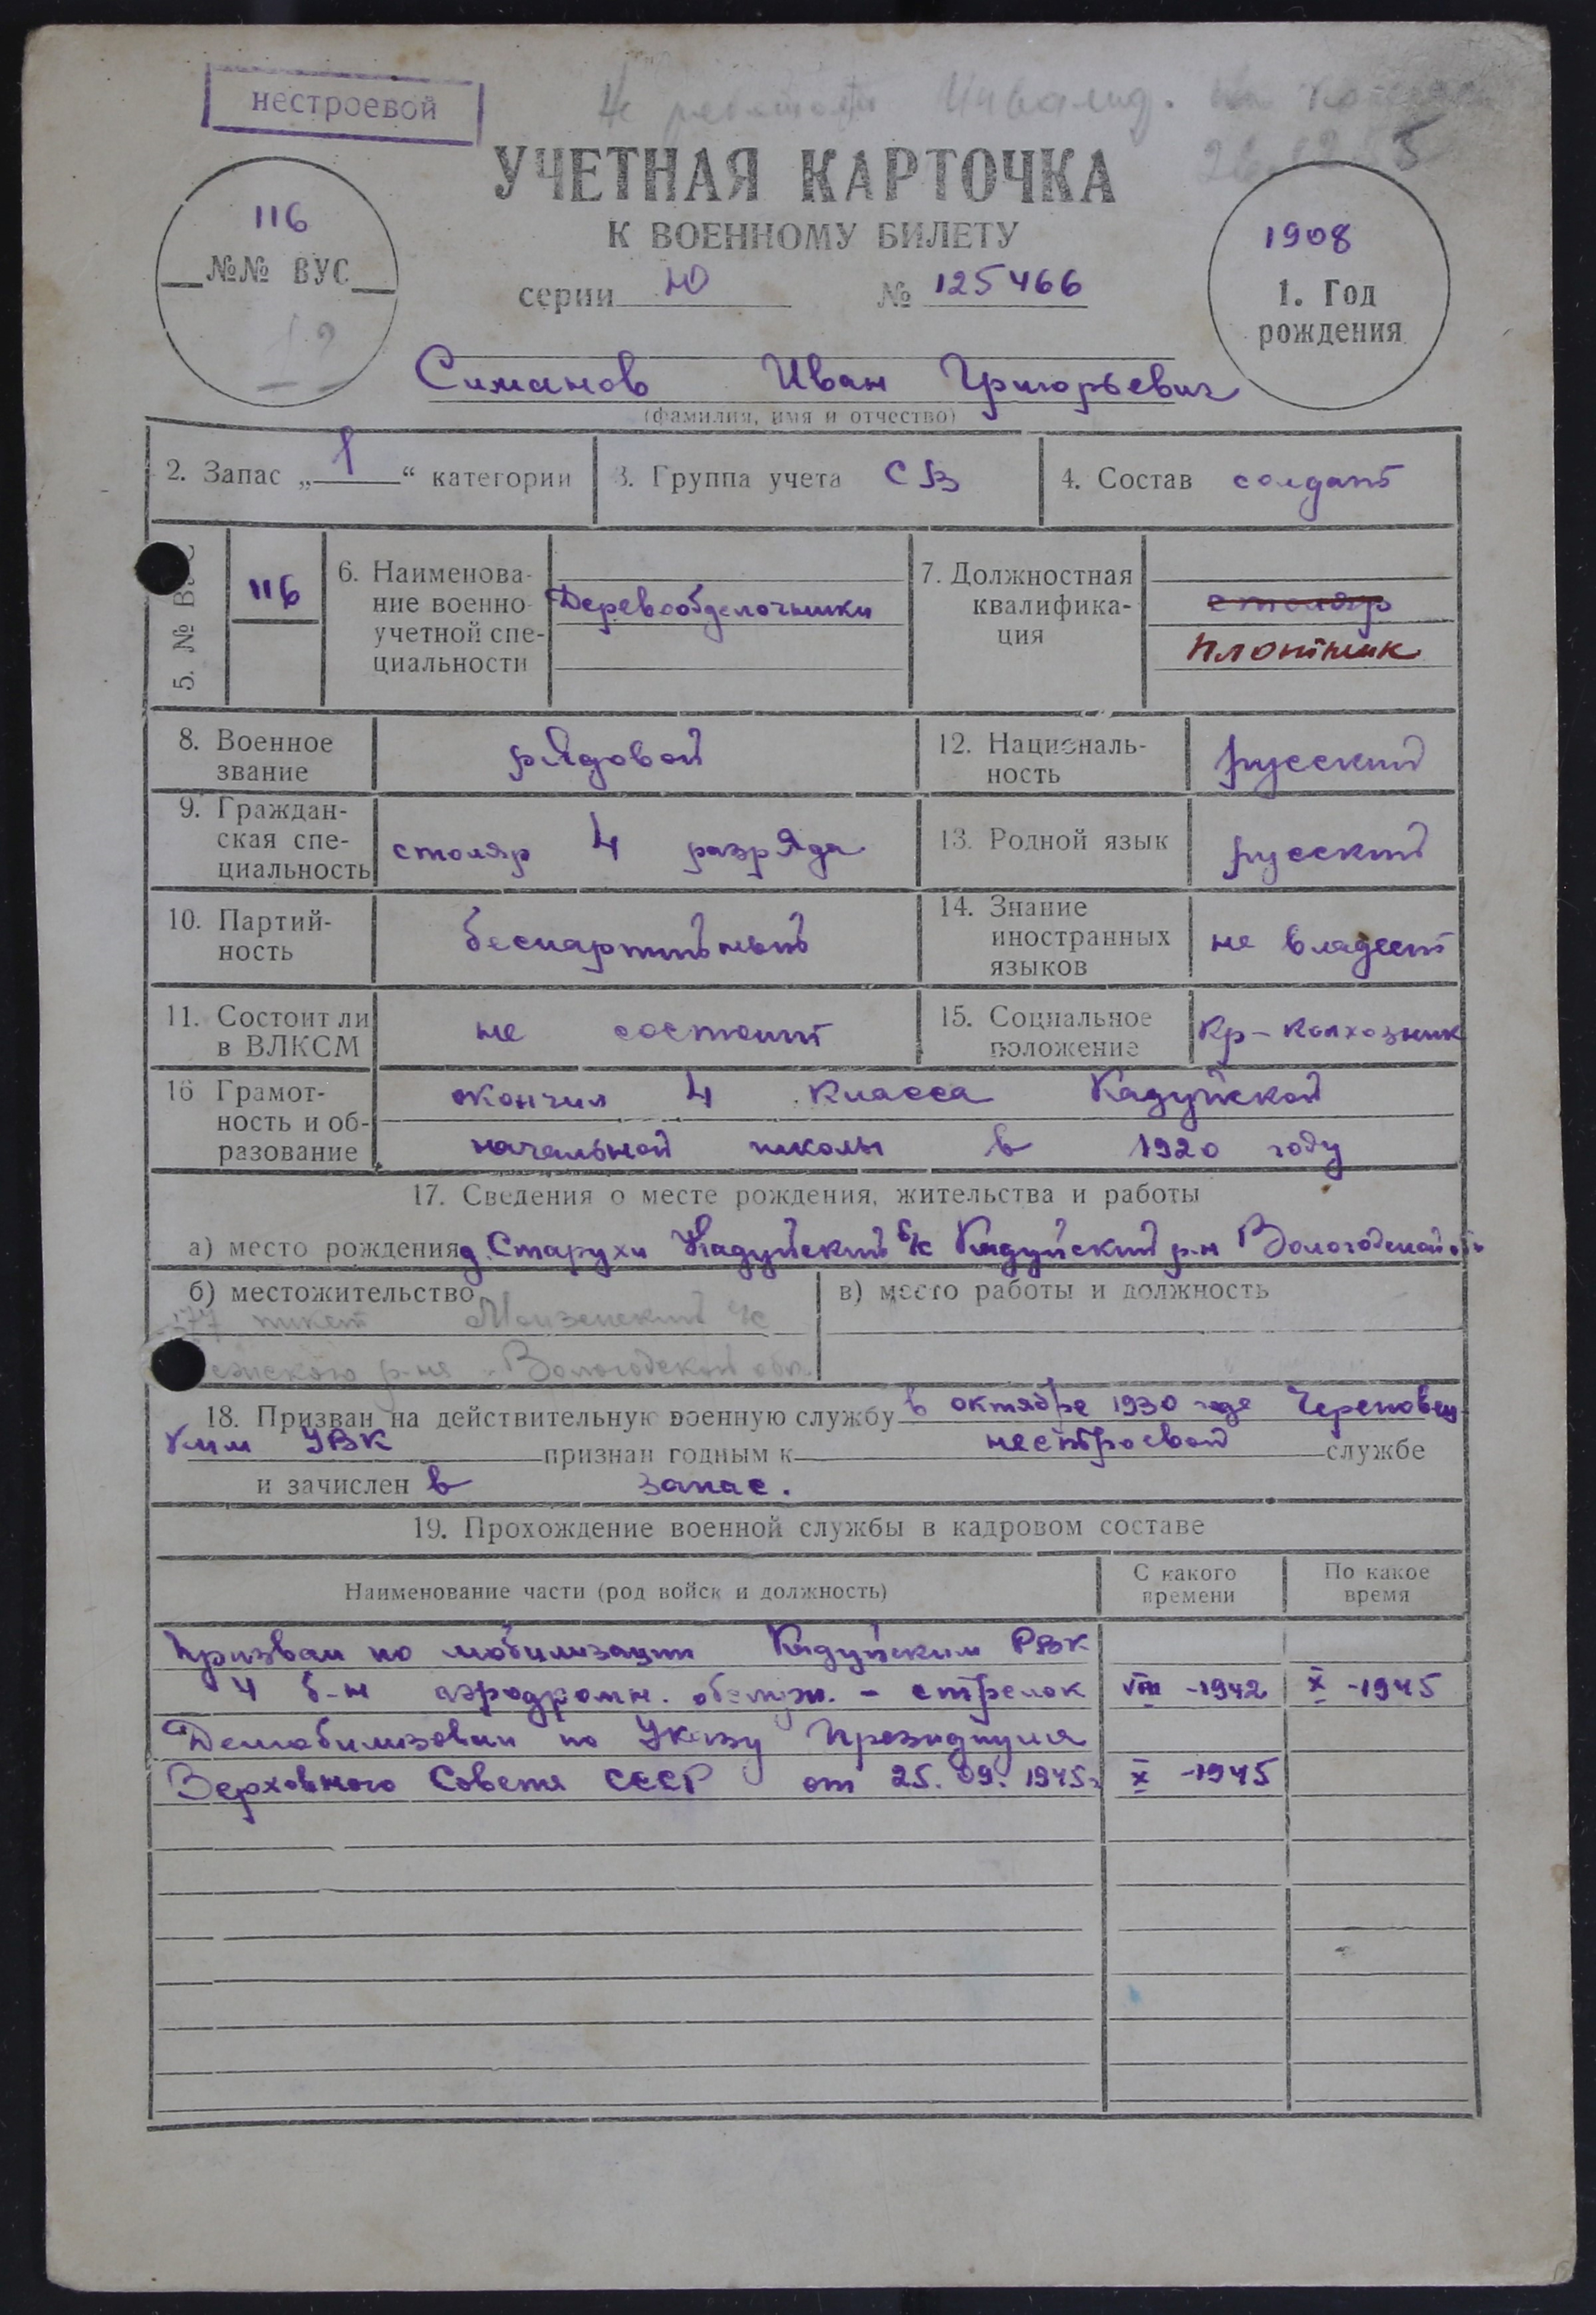 нестроевой
Не работает Инвалид.
УЧЕТНАЯ КАРТОЧКА
К ВОЕННОМУ БИЛЕТУ
116
№№ ВУС
12
серии Ю № 125466
1908
1. Год
рождения
Симанов Иван Григорьевич
(фамилия, имя и отчество)
2. Запас „1“ категории
3. Группа учета СВ
4. Состав солдат
5. № ВУС
116
6. Наименова-
ние военно-
учетной спе-
циальности
Деревообделочники
7. Должностная
квалифика-
ция
столяр
плотник
8. Военное
звание
рядовой
12. Националь-
ность
русский
9. Граждан-
ская спе-
циальность
столяр 4 разряда
13. Родной язык
русский
10. Партий-
ность
беспартийный
14. Знание
иностранных
языков
не владеет
11. Состоит ли
в ВЛКСМ
не состоит
15. Социальное
положение
Кр-колхозник
16 Грамот-
ность и об-
разование
окончил 4 класса Кадуйской
начальной школы в 1920 году
17. Сведения о месте рождения, жительства и работы
а) место рождения д. Старухи Кадуйский с/с Кадуйский р-н Вологодской об
б) местожительство
377 пикет с/с
р-на Вологодской обл.
в) место работы и должность
18. Призван на действительную военную службу в октябре 1930 года Череповец
ким УВК признан годным к нестроевой службе
и зачислен в запас.
19. Прохождение военной службы в кадровом составе
Наименование части (род войск и должность)
С какого
времени
По какое
время
Призван по мобилизации Кадуйским РВК
4 б-н аэродромн. обслуж. - стрелок VIII -1942 X -1945
Демобилизован по Указу Президиума
Верховного Совета СССР от 25. 09. 1945г X -1945